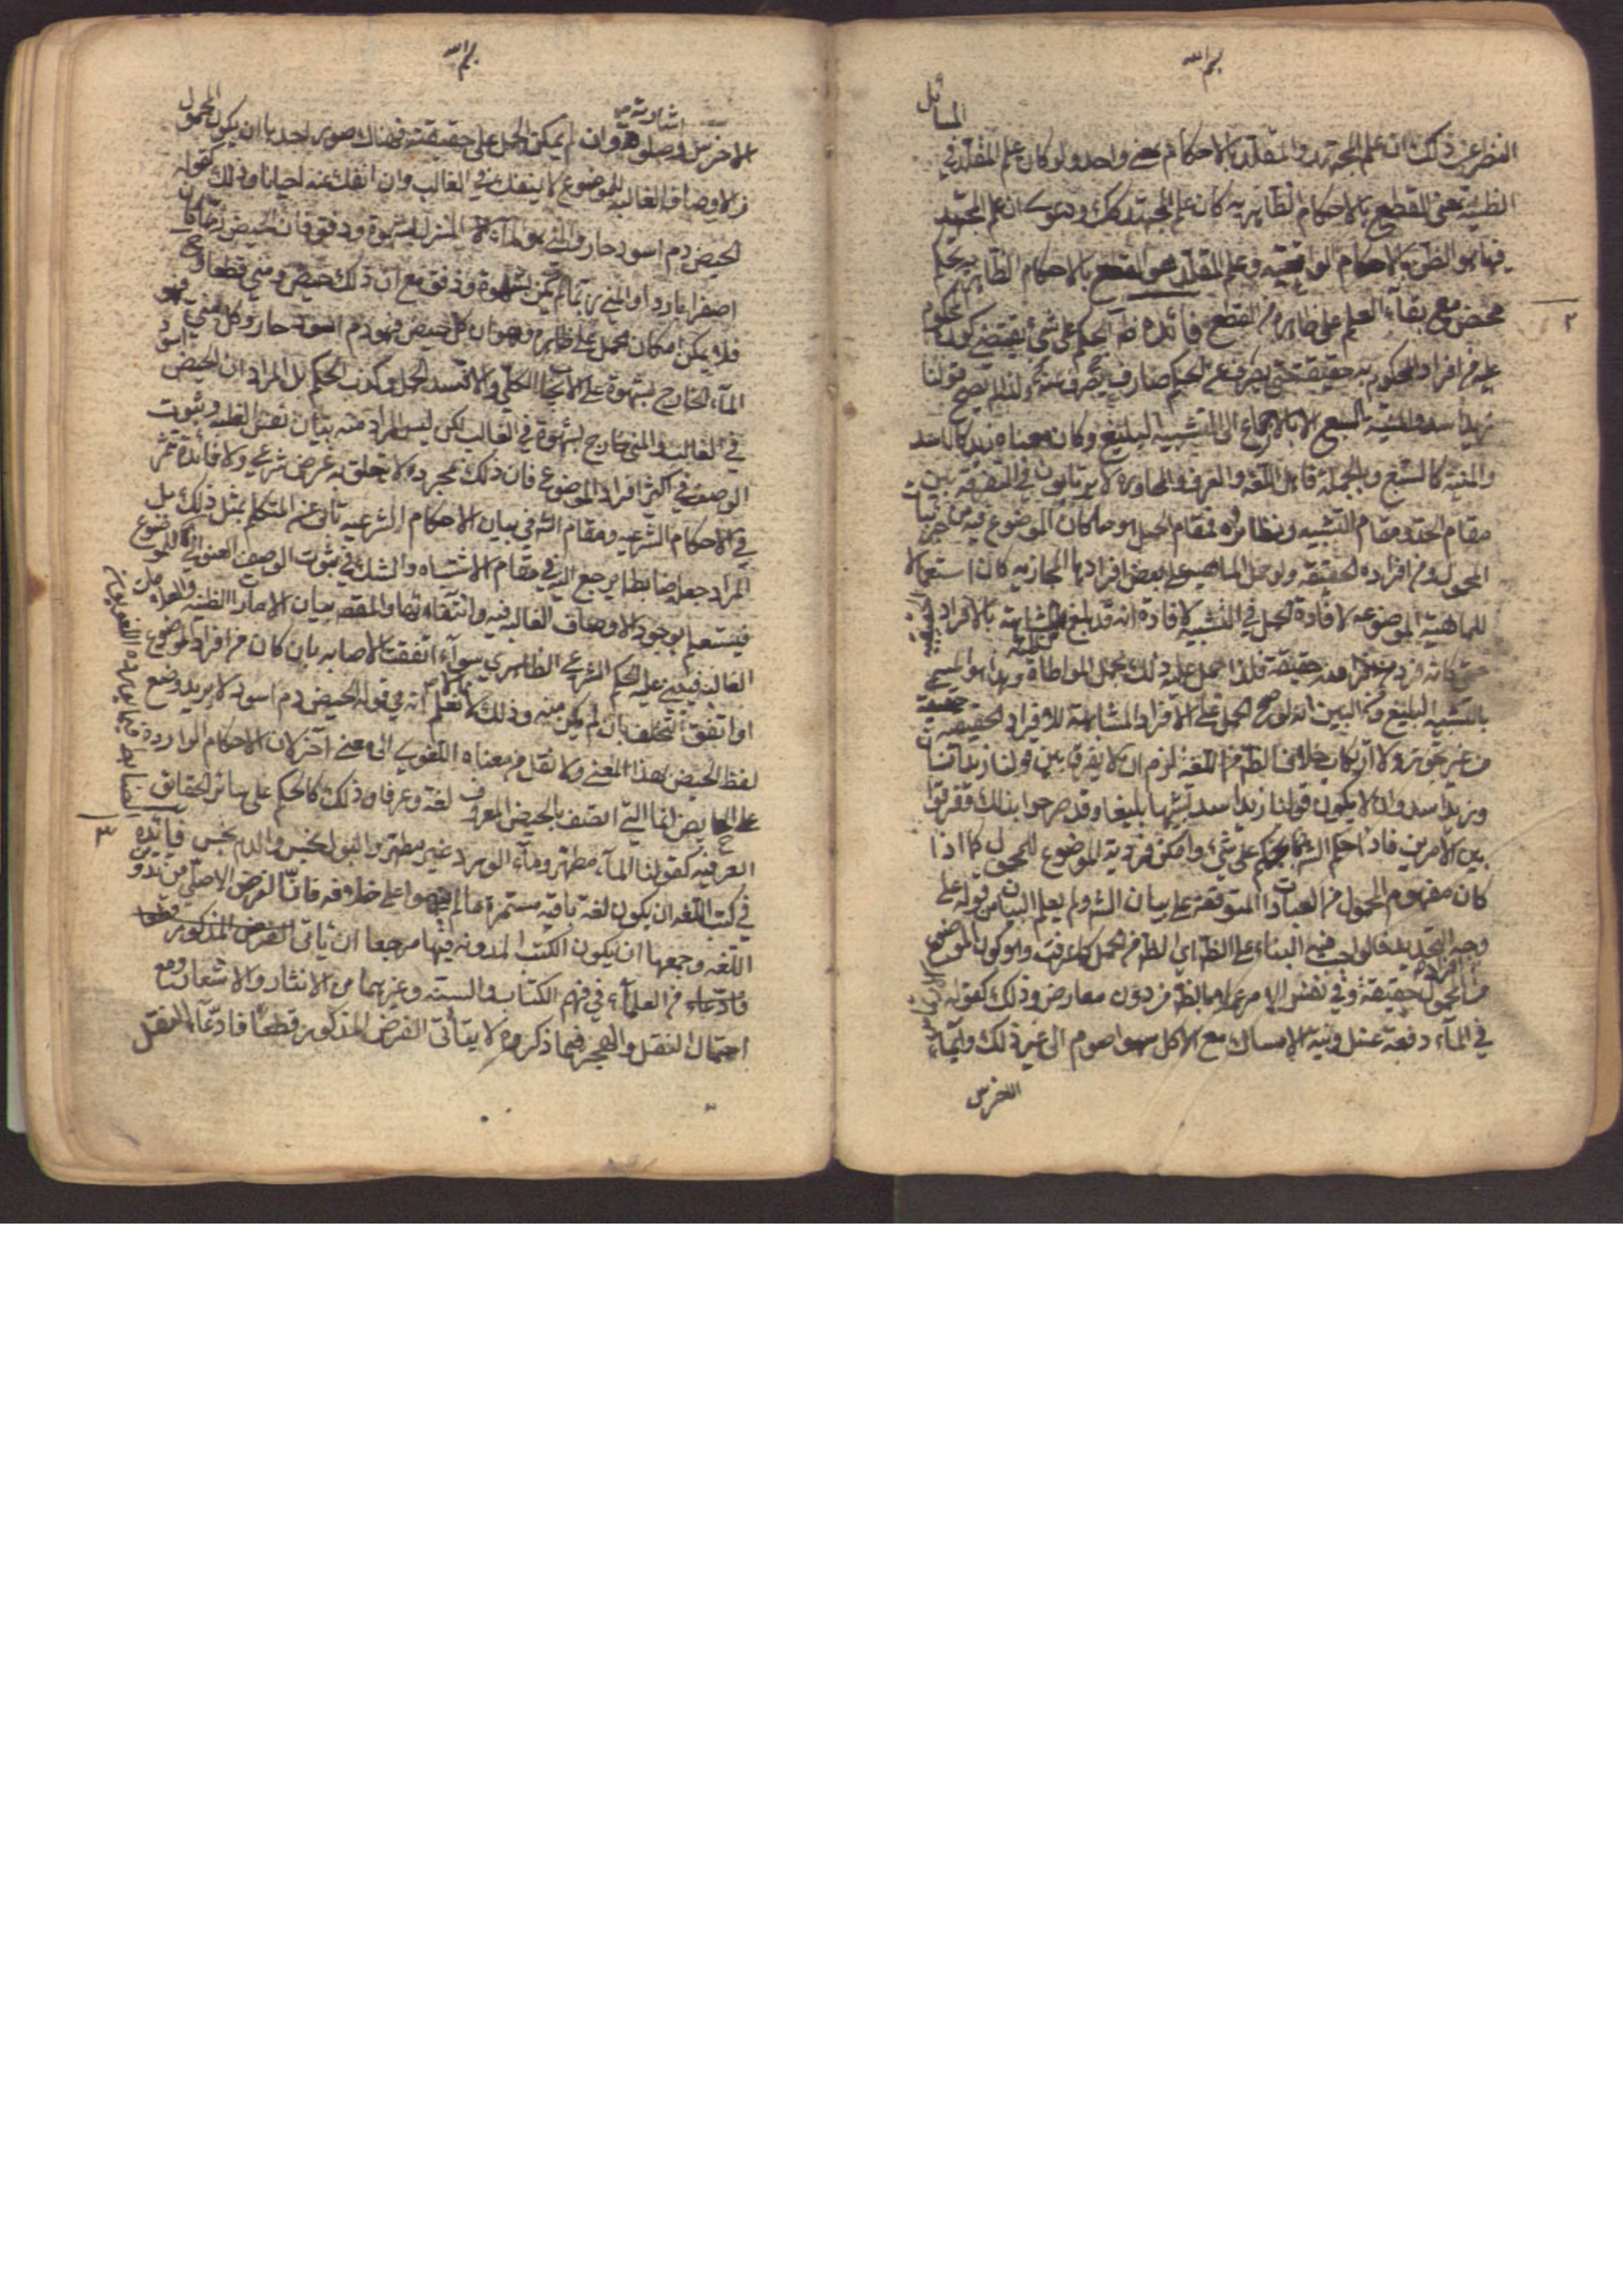 بسم الله
المسائل
النظر عن ذلك ان علم المجتهد والمقلد بالاحكام بمعنى واحد ولو كان علم المقلد في
الظنية بمعنى القطع بالاحكام الظاهرية كان علم المجتهد كك ودعوى ان علم المجتهد
فيها هو الظن بالاحكام الواقعية وعلم المقلد هو القطع بالاحكام الظاهرية تحكم
محض مع بقاء العلم على ظاهره من القطع فائدة ظ الحكم على شيء يقتضي كون المحكوم
عليه من افراد المحكوم به حقيقة حتى يصرف عن الحكم صارف ولذا لم يصح قولنا
زيد اسد والمنية السبع الا بالارجاع الى التشبيه البليغ وكان معناه زيد كالاسد
والمنية كالسبع وبالجملة فاهل اللغة والعرف والمحاورة لا يرتابون في التفرقة بين
مقام الحمل ومقام التشبيه ونظائره فمقام الحمل هو ما كان الموضوع فيه من جزئيات
المحمول ومن افراده الحقيقية ولو حمل الماهية على بعض افرادها المجازية كان استعمالا
للماهية الموضوعة لافادة الحمل في التشبيه لافادة انه قد بلغ المشابهة بالافراد الحقيقية
حتى كانه فرد منها حقيقة فلذا حمل عليه ذلك بحمل المواطاة وهذا هو المسمى
بالتشبيه البليغ ومن البين انه لو صح الحمل على الافراد المشابهة للافراد الحقيقية حقيقة
من غير تجوز ولا ارتكاب خلاف الظ من اللغة لزم ان لا يفرق بين قولنا زيد انسان
وزيد اسد وان لا يكون قولنا زيد اسد تشبيها بليغا وقد صرحوا بذلك وفرقوا
بين الامرين فاذا حكم الشارع بحكم على شيء وامكن فردية الموضوع للمحمول كما اذا
كان مفهوم المحمول من العبادات المتوقفة على بيان الشارع ولم يعلم البيان من قوله على
وجه التحديد فالواجب فيه البناء على الظ اي الظ من الحمل كما عرفت وهو كون الموضوع
من افراد المحمول حقيقة وفي نفس الامر عملا بالظ من دون معارض وذلك كقوله الارتماس
في الماء دفعة غسل ونية الامساك مع الاكل سهوا صوم الى غير ذلك وايماء
الاخرس
٢
بسم الله
الاخرس واشاراته صلوة وان لم يمكن الحمل على حقيقته فهناك صور احدها ان يكون المحمول
من الاوصاف الغالبة للموضوع لا ينفك عنه في الغالب وان انفك عنه احيانا وذلك كقوله
الحيض دم اسود حار والمني هو الماء المنزل بشهوة ودفق فان الحيض ربما كان
اصفرا باردا والمني ربما لم يكن بشهوة ودفق مع ان ذلك حيض ومني قطعا وح
فلا يمكن امكان الحمل على ظاهره وهو ان كل حيض فهو دم اسود حار وكل مني فهو
الماء الخارج بشهوة على الايجاب الكلي والا لفسد الحمل وكذب الحكم بل المراد ان الحيض اسود
في الغالب والمني خارج بشهوة في الغالب لكن ليس المراد منه بيان نفس الغلبة وثبوت
الوصف في اكثر افراد الموضوع فان ذلك بمجرده لا يتعلق به غرض شرعي ولا فائدة تثمر
في الاحكام الشرعية ومقام الشارع في بيان الاحكام الشرعية تابى عن التكلم بمثل ذلك بل
المراد جعلها ضابطا يرجع اليه في مقام الاشتباه والشك في ثبوت الوصف العنواني للموضوع
فيستعلم بوجود الاوصاف الغالبة فيه وانتفائها والمقصد بيان الامارات الظنية والعوامل
الغالبة فيبني عليه الحكم الشرعي الظاهري سواء اتفقت الاصابة بان كان من افراد الموضوع
او اتفق التخلف بان لم يكن منه وذلك لانا نعلم انه في قوله الحيض دم اسود لا يريد وضع
لفظ الحيض لهذا المعنى ولا نقل من معناه اللغوي الى معنى آخر لان الاحكام الواردة
على الحايض لفا التي اتصف بالحيض المعروف لغة وعرفا وذلك كالحكم على سائر الحقائق
العرفية كقولنا الماء مطهر وماء الورد غير مطهر والبول نجس والدم نجس فائدة
في كتب اللغة ان يكون لغة باقية مستمرة ما لم على خلافه فان الغرض الاصلي من تدوين
اللغة وجمعها ان يكون الكتب المدونة فيها مرجعا ان ياتى الغرض المذكور قطعا
فادعاء من العلماء في فهم الكتاب والسنة وغيرهما من الانثار والاشعار ومع
احتمال النقل والهجر فيما ذكروه لا يتأتى الغرض المذكور قطعا فادعاء النقل
٣